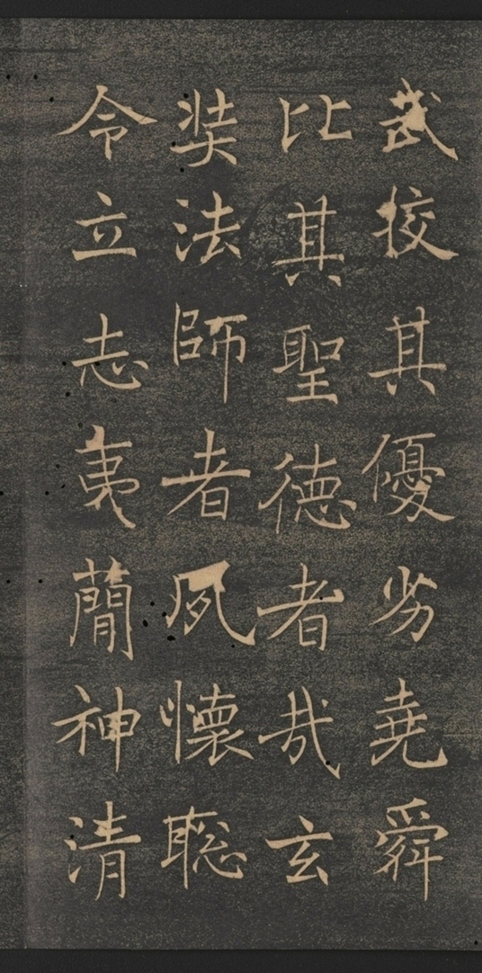 武挍其優劣堯舜
比其聖德者哉玄
奘法師者夙懷聡
令立志夷蕳神清